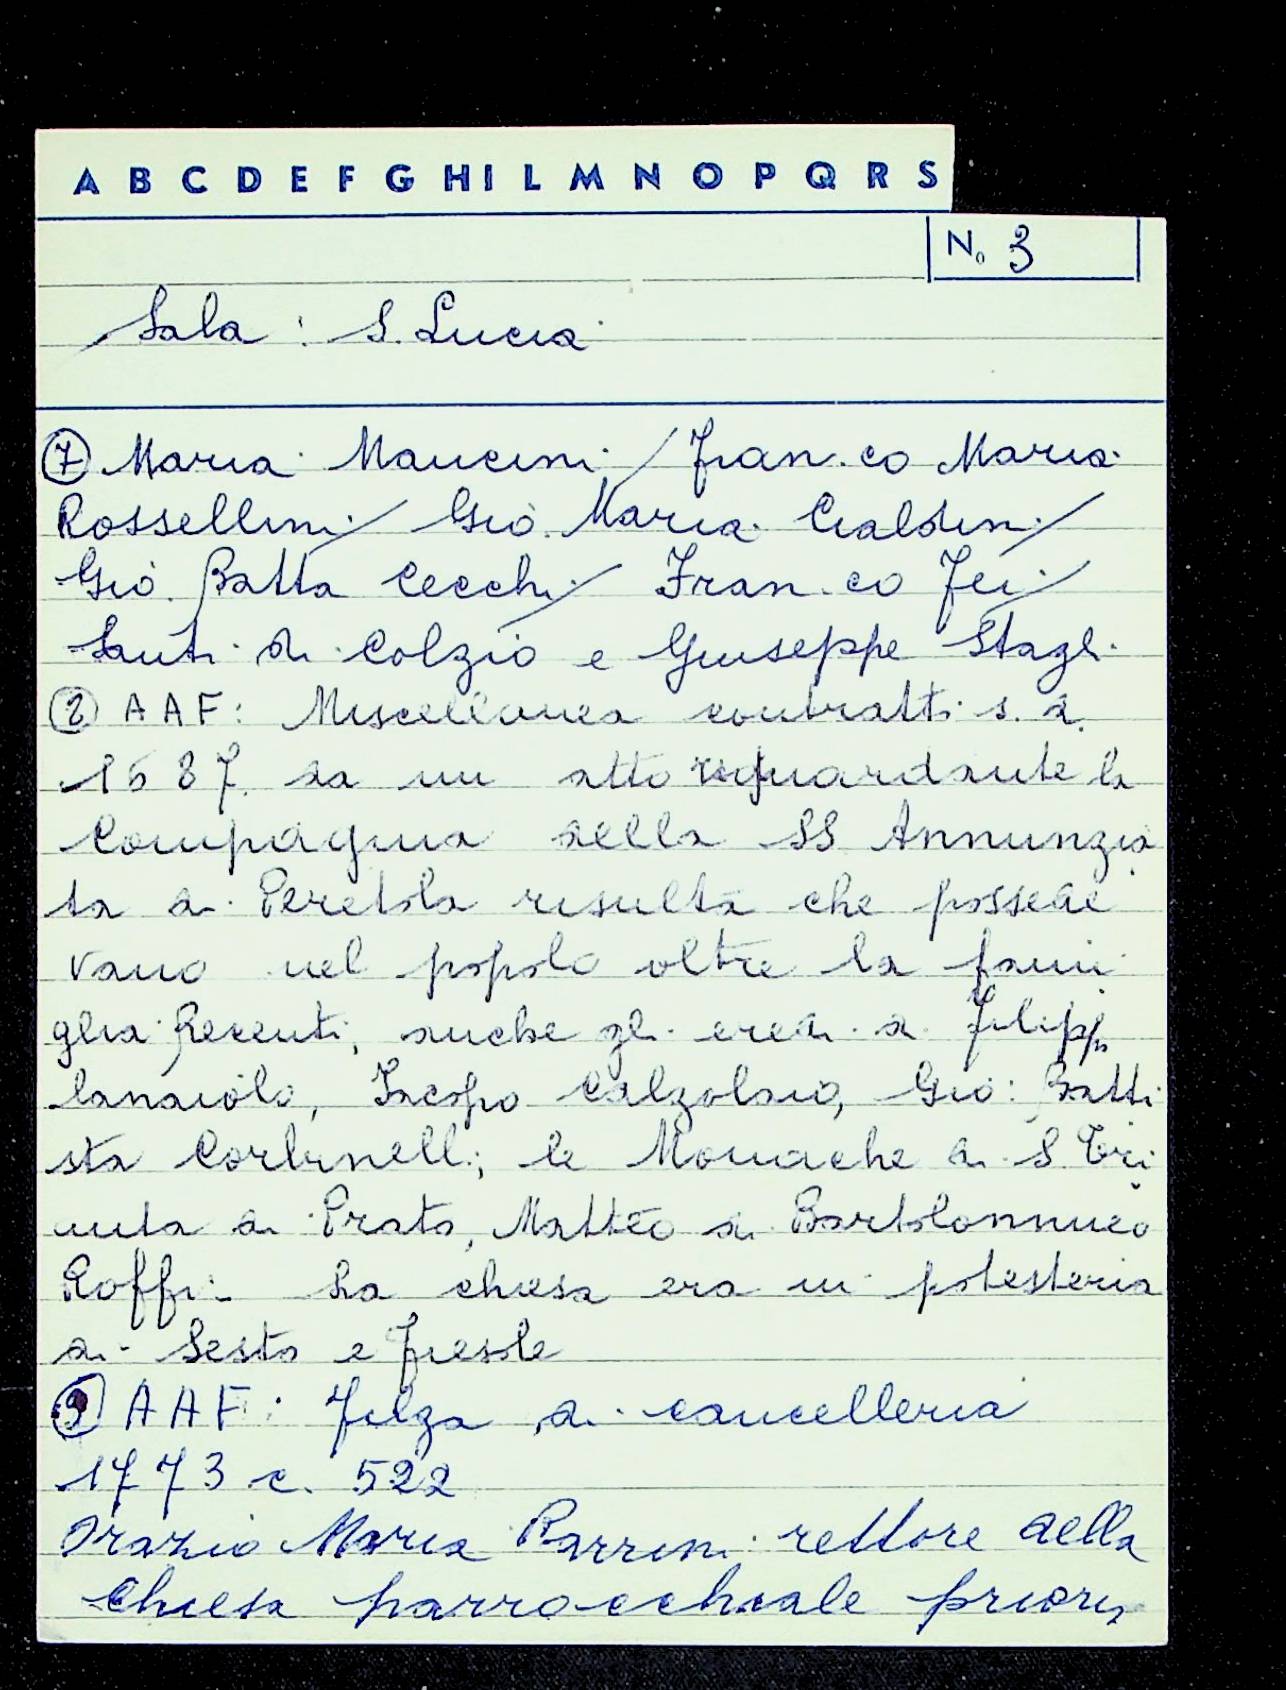 A B C D E F G H I L M N O P Q R S
N. 3
Sala : S. Lucia
⑦ Maria Mancini / Fran.co Maria
Rossellini / Giò. Maria Cialdini /
Giò. Batta Cecchi / Fran.co Fei /
Santi di Colzio e Giuseppe Stagi.
② AAF: Miscellanea contratti s. d.
1687. da un atto riguardante la
Compagnia della SS Annunzia
ta di Peretola risulta che possede
vano nel popolo oltre la fami
glia Recenti, anche gli eredi di Filippo
lanaiolo, Jacopo Calzolaio, Giò: Batti
sta Corbinelli; le Monache di S. Tri
nita di Prato, Matteo di Bartolommeo
Roffi - La chiesa era in potesteria
di Sesto e Fiesole
⑨ AAF: Filza di cancelleria
1773 c. 522
Orazio Maria Parrini rettore della
Chiesa parrocchiale prioria